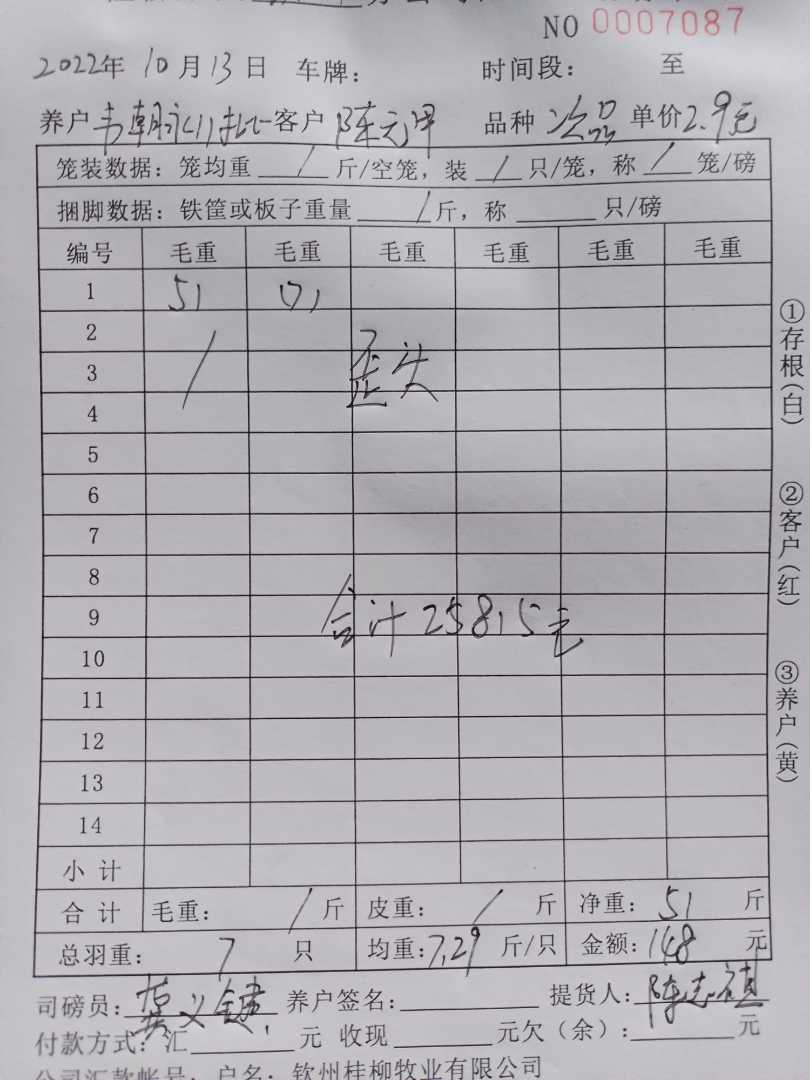 NO 0007087
2022年 10月13日 车牌： 时间段： 至
养户 韦朝 客户 陈元甲 品种 次品 单价2.9元
笼装数据：笼均重 / 斤/空笼，装 / 只/笼，称 / 笼/磅
捆脚数据：铁筐或板子重量 / 斤，称 只/磅
编号 毛重 毛重 毛重 毛重 毛重 毛重
1 51
2
3 / 歪头
4
5
6
7
8
9 合计 25815元
10
11
12
13
14
小计
合计 毛重： / 斤 皮重： / 斤 净重：51 斤
总羽重： 7 只 均重：7.29 斤/只 金额：148 元
司磅员： 养户签名： 提货人：陈志禎
付款方式：汇 元 收现 元欠（余）： 元
公司汇款帐号：户名：钦州桂柳牧业有限公司
①存根（白）
②客户（红）
③养户（黄）